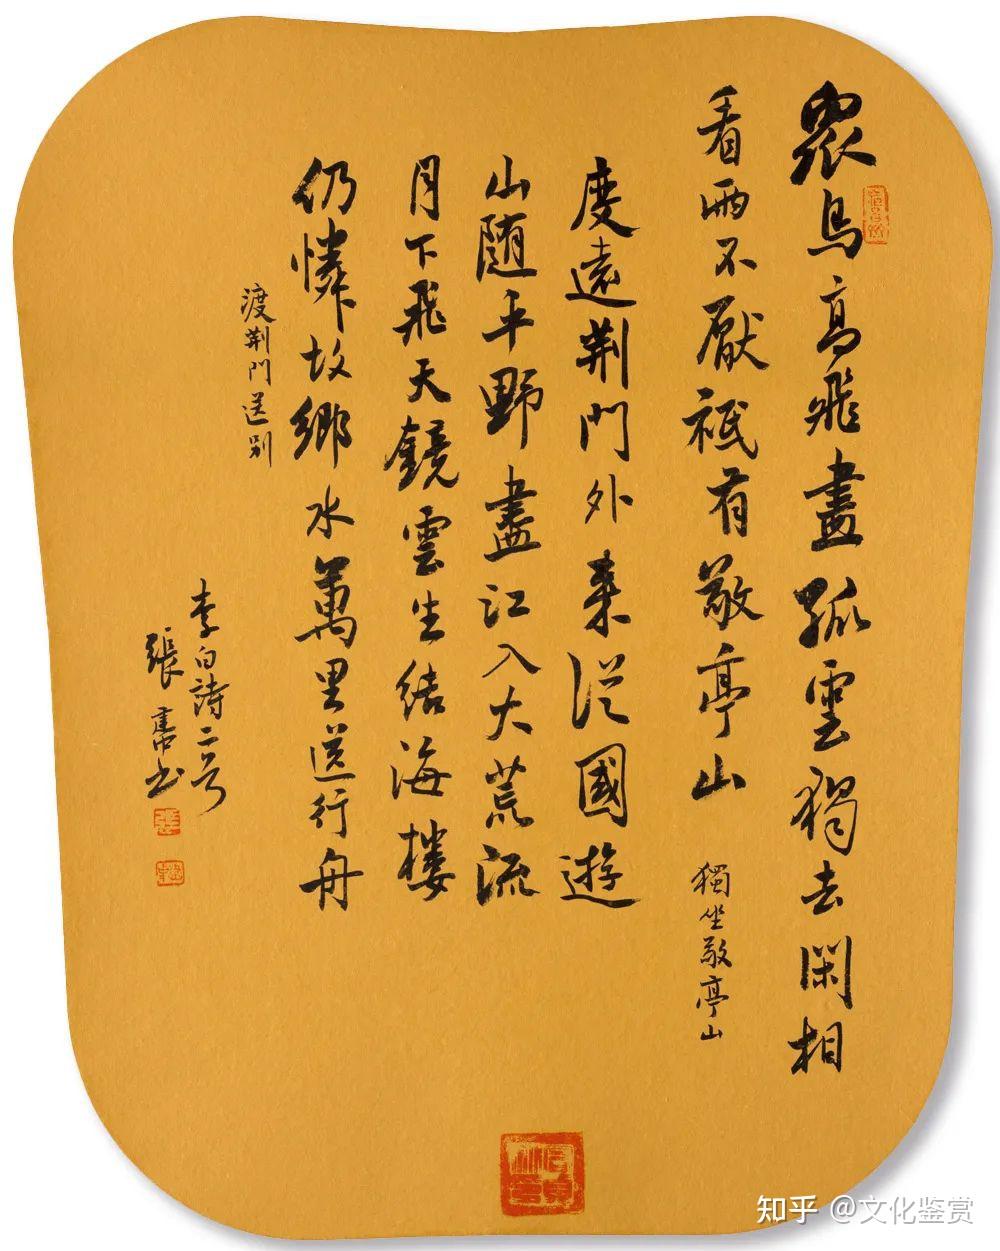 眾鳥高飛盡孤雲獨去閑相
看兩不厭祗有敬亭山
獨坐敬亭山
度遠荊門外来從國遊
山隨平野盡江入大荒流
月下飛天鏡雲生結海樓
仍憐故鄉水萬里送行舟
渡荊門送別
李白詩二首
張书
知乎 @文化鉴赏